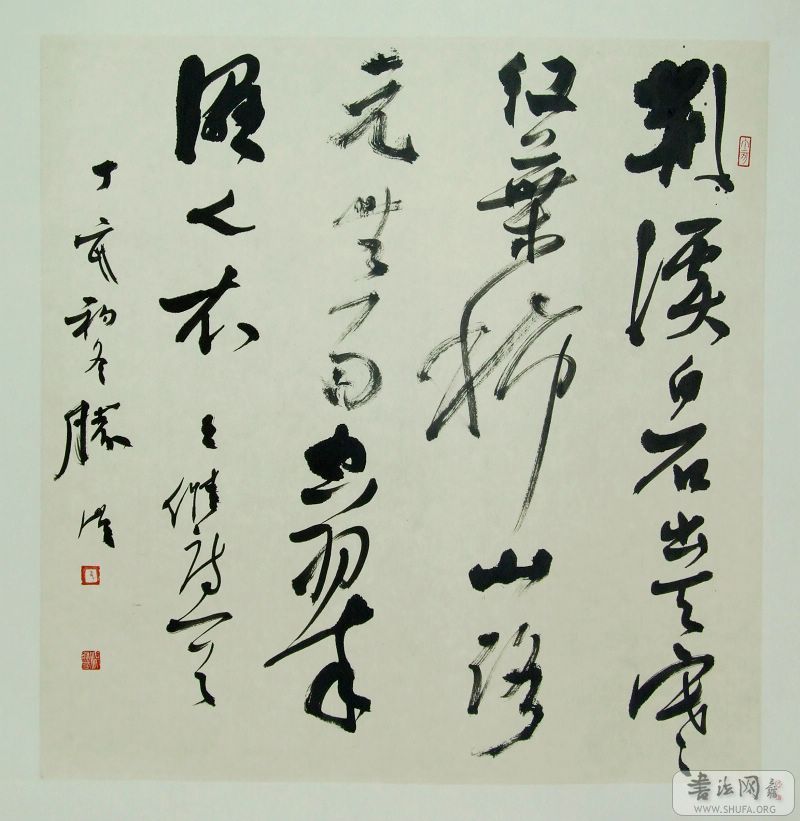 荆溪白石出天寒
红葉稀山路
元無雨空翠
濕人衣 王維詩一首
丁亥初冬勝
書法网
WWW.SHUFA.ORG